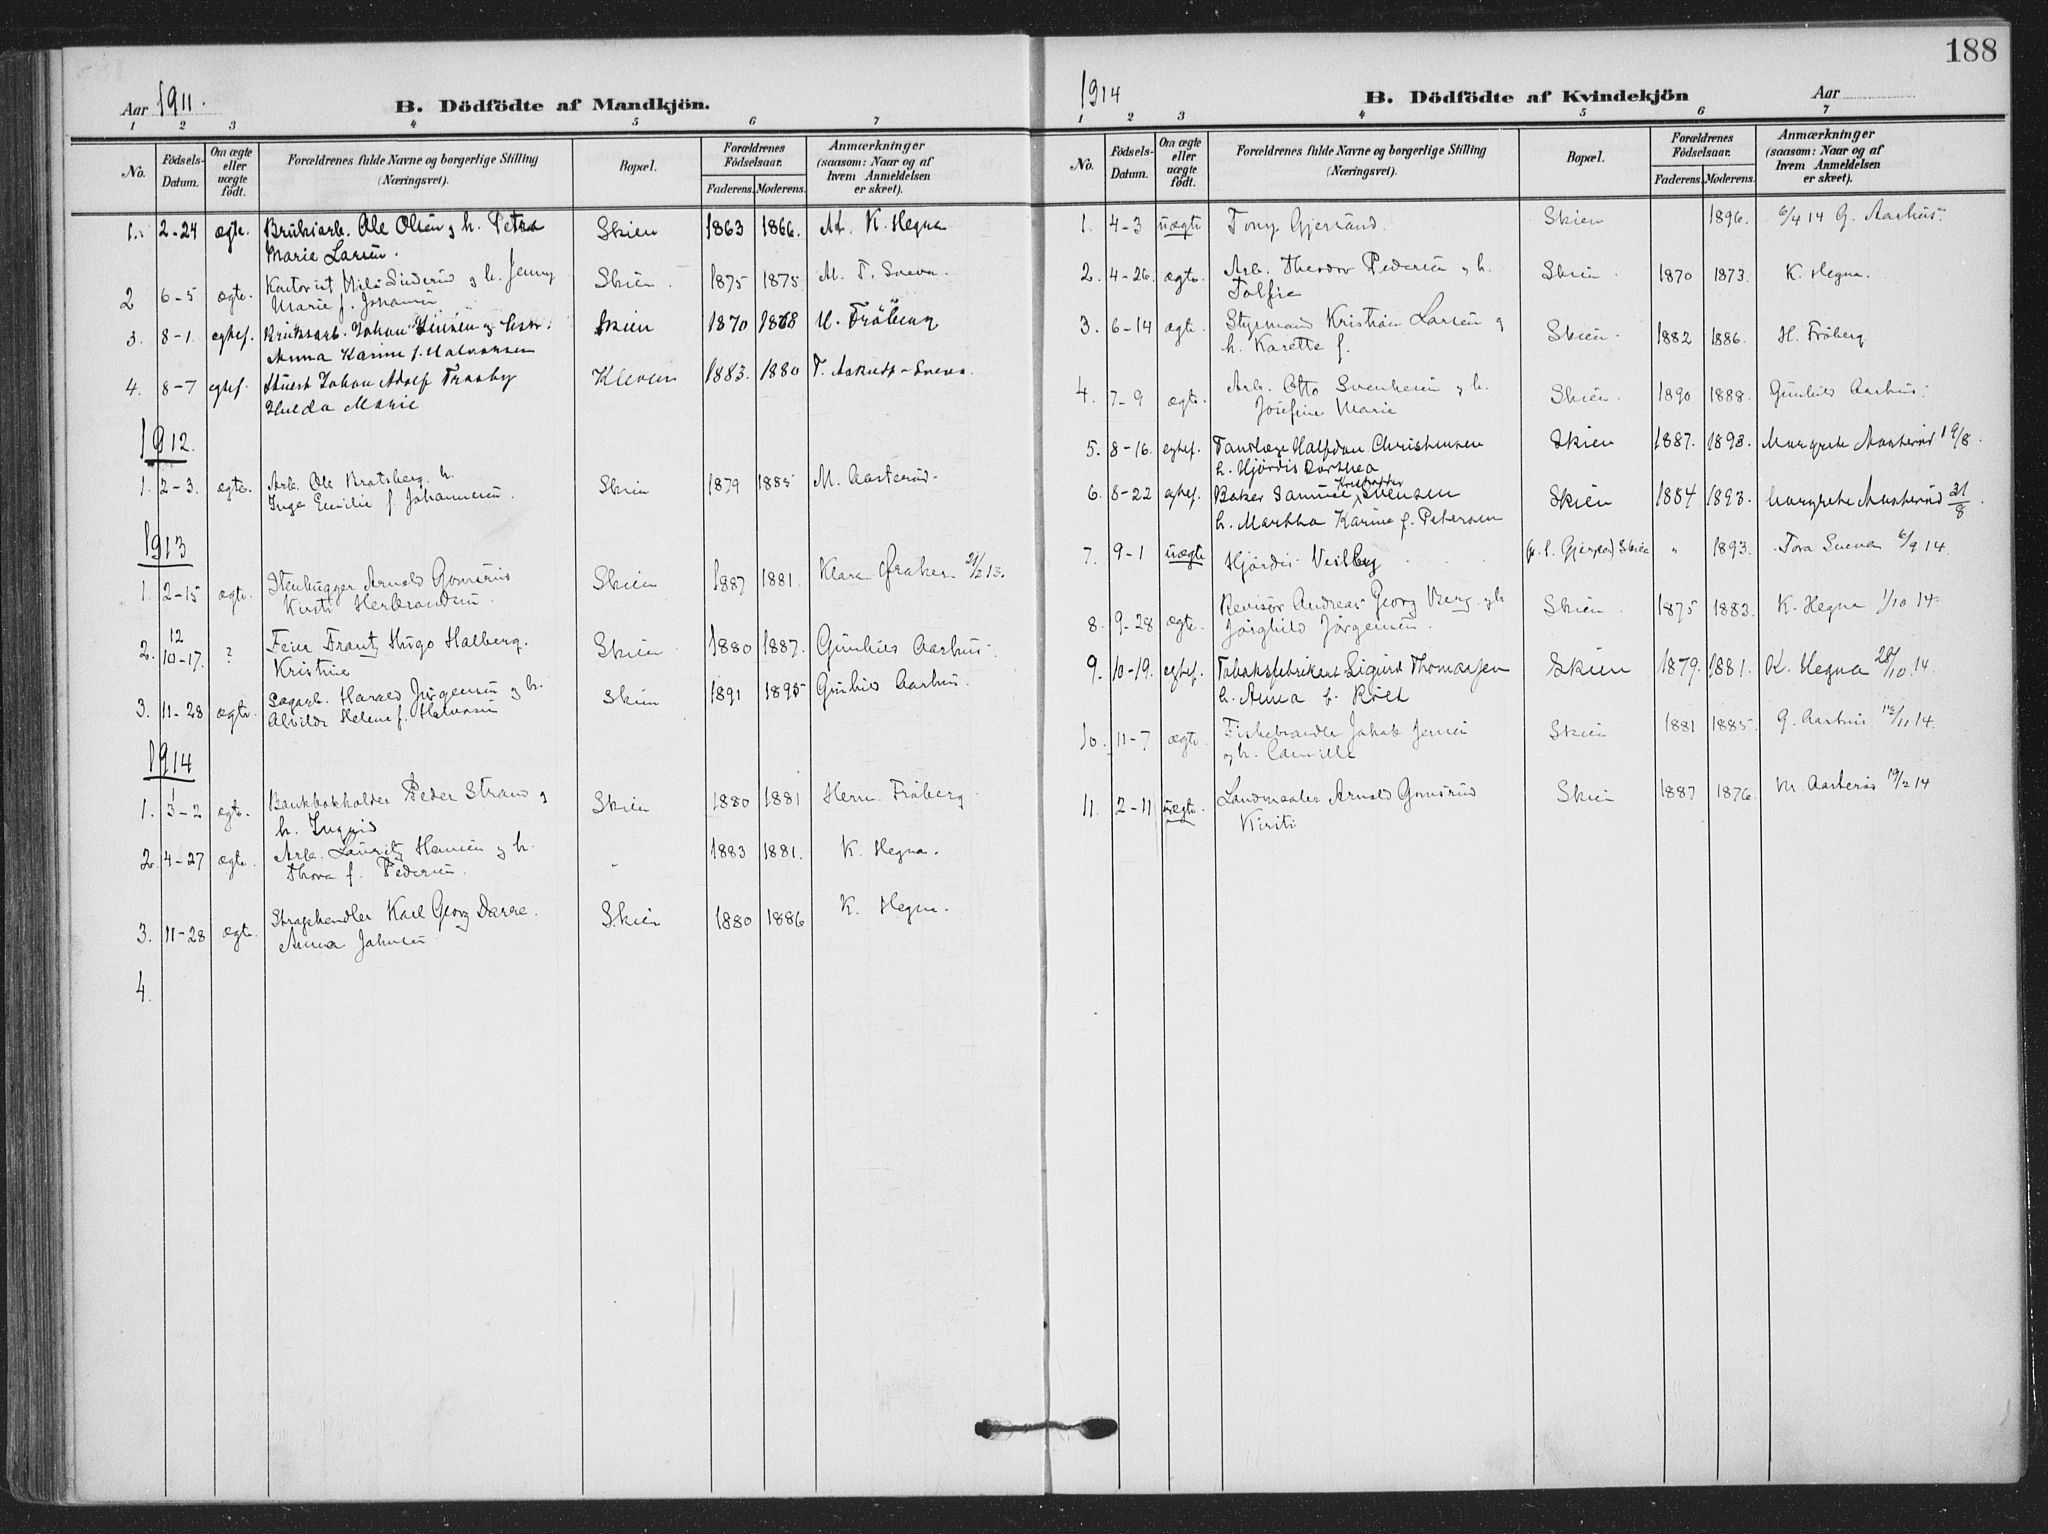 188
Aar 1911.
B. Dödfödte af Mandkjön.
1 2 3 4 5 6 7
No.
Födsels-Datum.
Om ægte eller uægte födt.
Forældrenes fulde Navne og borgerlige Stilling (Næringsvei).
Bopæl.
Forældrenes Födselsaar.
Faderens. Moderens.
Anmærkninger (saasom: Naar og af hvem Anmeldelsen er skeet).
1. 2-24 ægte. Bruksarb. Ole Olsen og h. Petra Skien 1863 1866. At. K. Hegna
Marie Larsen.
2 6-5 ægte. Kontorist Nils og h. Jenny Skien. 1875 1875. M. T. Sveva.
Marie f. Johansen
3. 8-1. eghef. Bruksarb. Johan Jensen og hstr: Skien 1870 1868 H. Fröberg
Anna Karine f. Halvorsen
4. 8-7 eghef. Johan Adolf Kleven 1883. 1880 T. - Sveva.
Hulda Marie
1912.
1. 2-3. ægte. Arb. Ole Bratsberg. h. Skien 1879 1885 M. Aasterud.
Inga Emilie f. Johannesen.
1913
1. 2-15 ægte. Stenhugger Arnold Gomsrud Skien 1887 1881. Klara 21/2 13.
Kirsti Herbrandsen.
2. 12 10-17. ? Feier Frantz Hugo Halberg. Skien 1880 1887. Gunhild Aarhus.
Kristine
3. 11-28 ægte. Sagarb. Harald Jørgensen og h. Skien 1891 1895 Gunhild Aarhus.
Alvilde Helene f. Halvorsen
1914
1. 1 3-2 ægte. Bankbokholder Peder Strand og Skien 1880 1881 Herm. Fröberg.
h. Ingrid
2. 4-27 ægte. Arb. Lauritz Hansen og h. " 1883 1881. K. Hegna.
Thora f. Pedersen.
3. 11-28 ægte. Karl Georg Darre. Skien 1880 1886 K. Hegna.
Anna Johnsen
4.
1914
B. Dödfödte af Kvindekjön
Aar
1 2 3 4 5 6 7
No.
Födsels-Datum.
Om ægte eller uægte födt.
Forældrenes fulde Navne og borgerlige Stilling (Næringsvei).
Bopæl.
Forældrenes Födselsaar.
Faderens. Moderens.
Anmærkninger (saasom: Naar og af hvem Anmeldelsen er skeet).
1. 4-3 uægte Tony Gjersund. Skien 1896. 6/4 14 G. Aarhus.
2. 4-26. ægte. Arb. Theodor Pedersen og h. Skien. 1870 1873. K. Hegna.
Tolfie
3. 6-14 ægte. Styrmand Kristian Larsen og Skien. 1882 1886. H. Fröberg
h. Karette f.
4. 7-9 ægte. Arb. Otto Svendsen og h. Skien. 1890 1888. Gunhild Aarhus.
Josefine Marie
5. 8-16. eghef. Tandlæge Halfdan Christensen Skien 1887. 1893. Margrete Aasterud 19/8.
h. Hjördis Dorthea
6. 8-22 eghef. Baker Samuel Kristoffer Svensen Skien 1884 1893. Margrete Aasterud 31/8.
h. Martha Karine f. Petersen
7. 9-1 uægte Hjördis Vestby (p. t. Gjerpen) Skien " 1893. Tora Sveva 6/9 14.
8. 9-28 ægte. Revisör Andreas Georg Berg. og h Skien. 1875 1883. K. Hegna 1/10 14.
Jørghild Jørgensen.
9. 10-19. eghef. Tobaksfabrikant Sigurd Thomassen Skien 1879. 1881. K. Hegna 28/10. 14.
h. Anna f. Röed
10. 11-7 ægte. Fiskehandler Jakob Jensen Skien 1881 1885. G. Aarhus 13/11 14.
og h. Camilla
11. 2-11 uægte. Landmaaler Arnold Gomsrud Skien 1887 1876. M. Aasterud 19/2 14
Kirsti